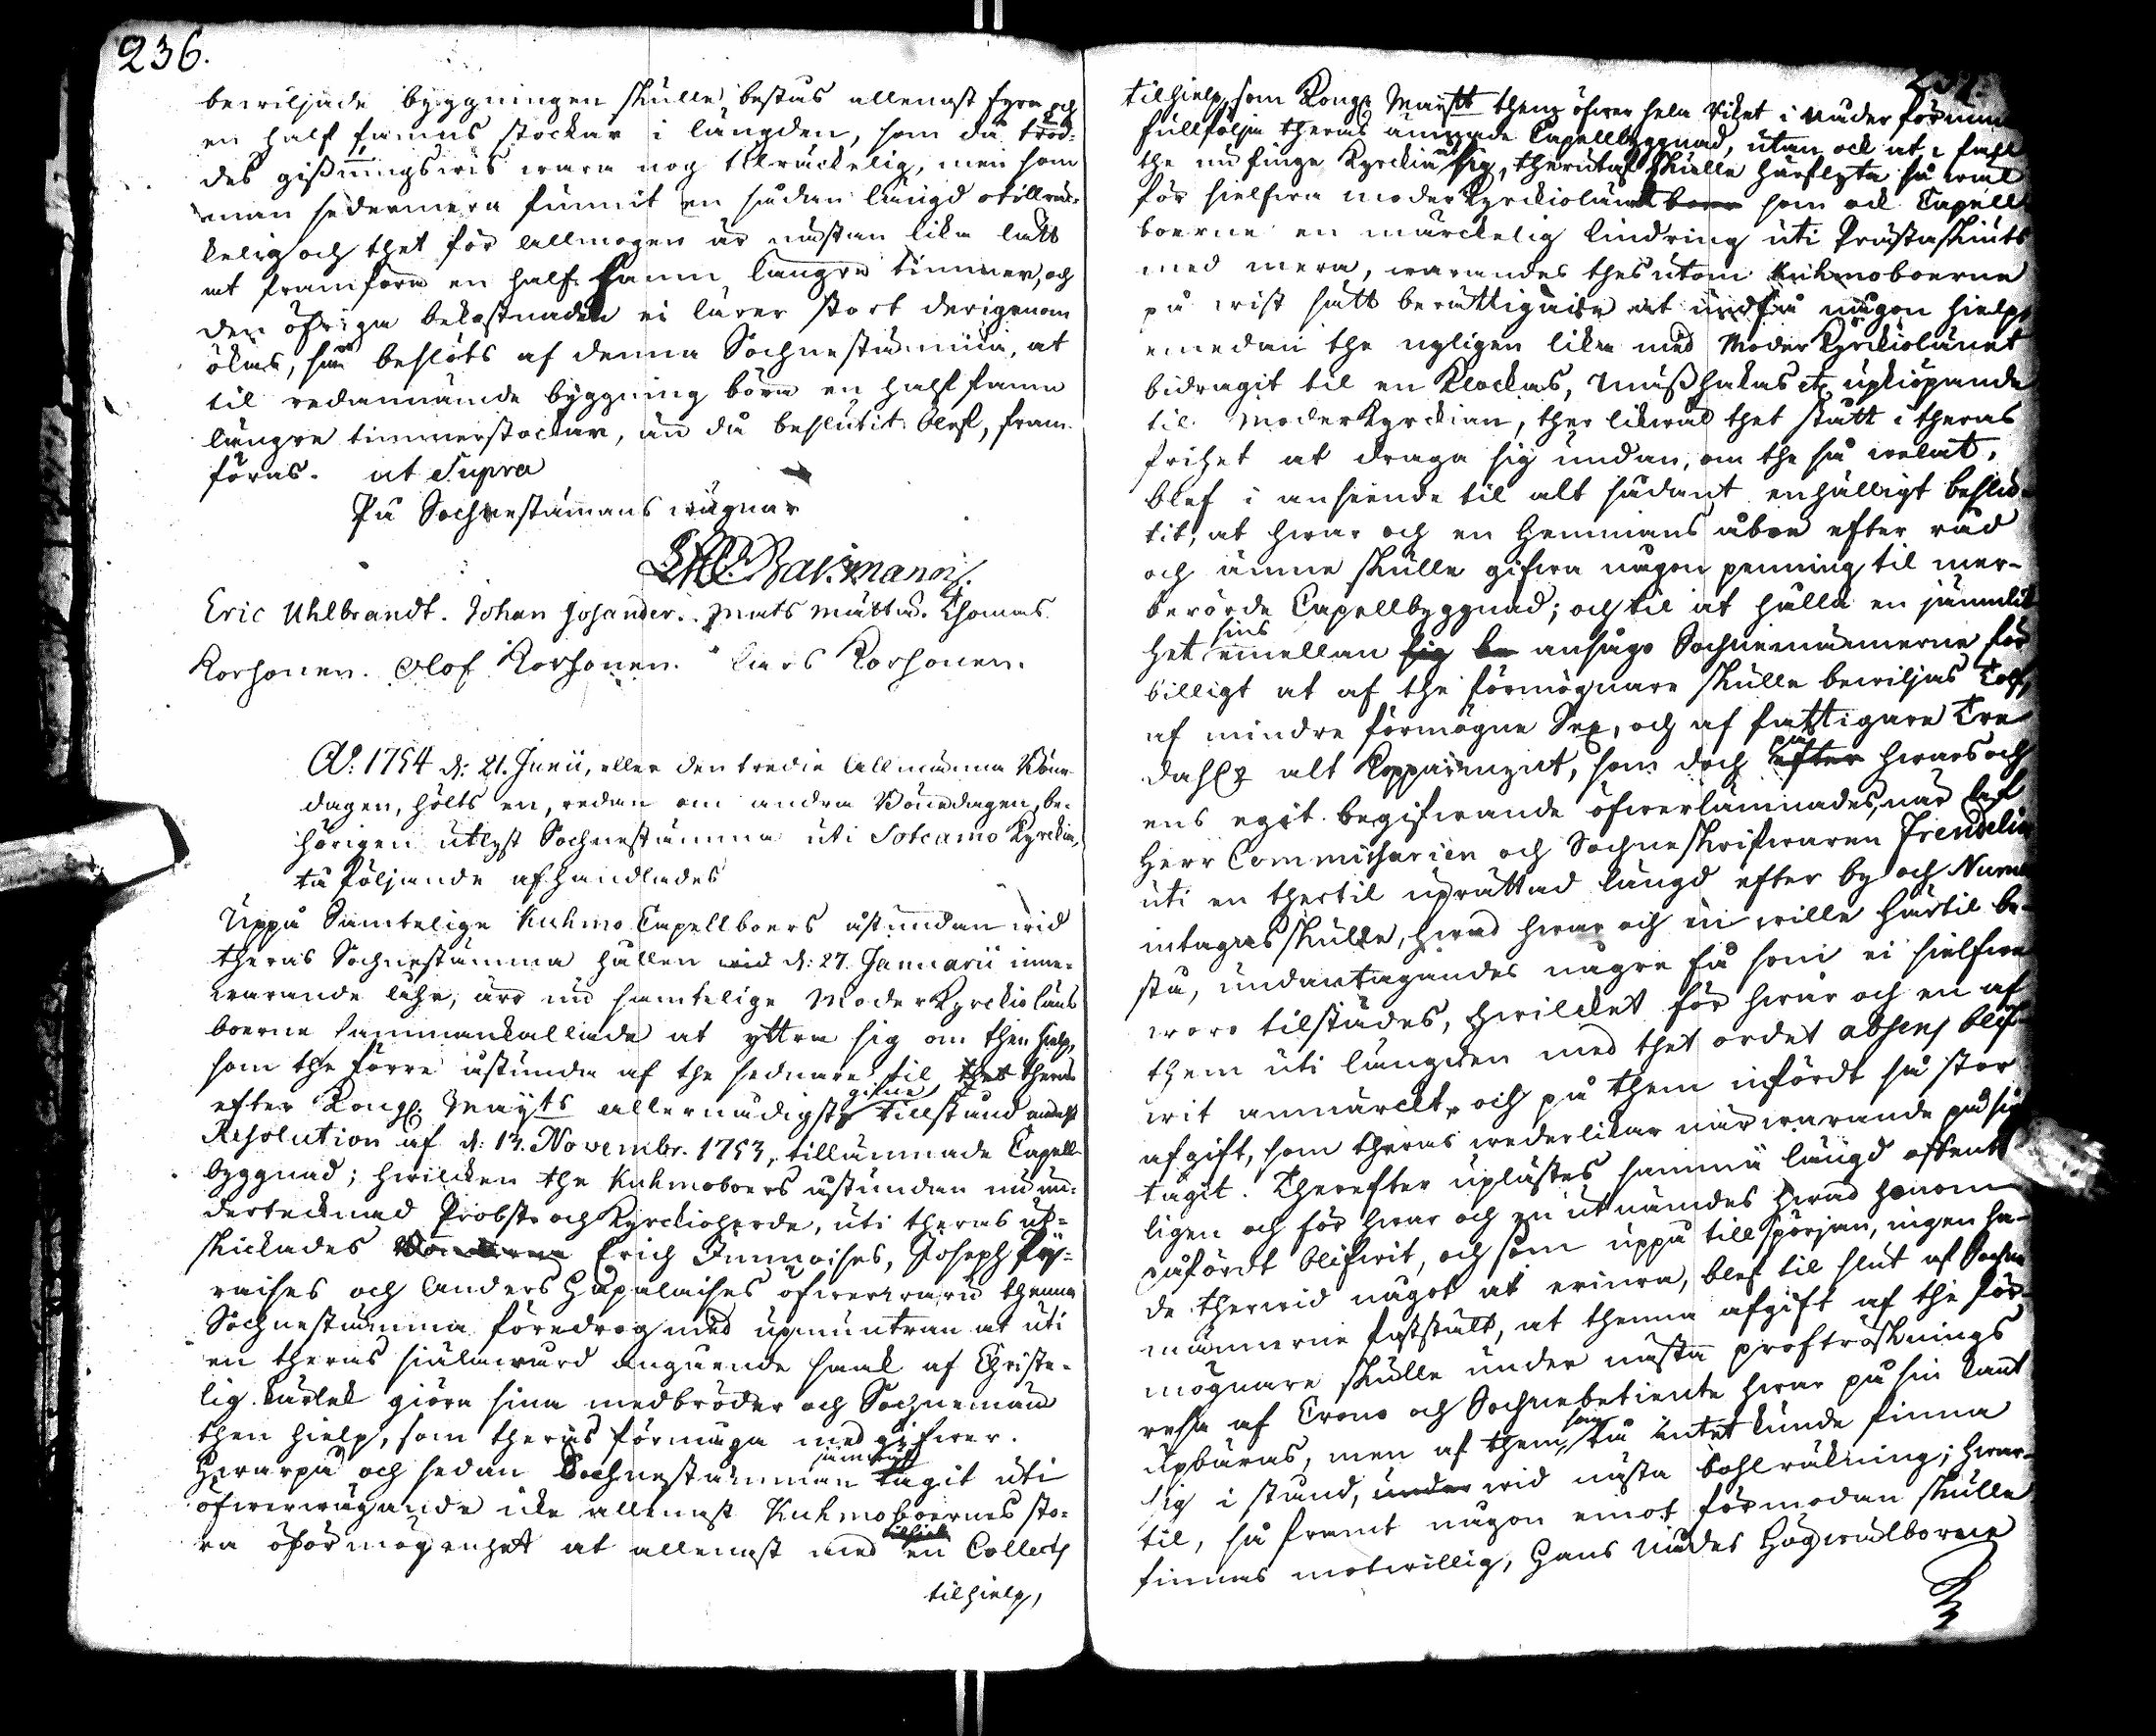 236.
bewiljade byggningen skulle bestås allenast fyra och
en half famns stockar i längden, som då trod-
des gissningswis wara nog tilräckelig, men som
man sedermera funnit en sådan längd otillräc-
kelig och thet för allmogen är nästan lika lätt
at framföra en half famn längre timmer, och
den öfriga bekostnaden ei lärer stort derigenom
ökas, så beslöts af denna Sochnestämma, at
til redannämde byggning böra en half famn
längre timmerstockar, än då beslutit blef, fram-
föras. ut Supra
På Sochnestämans wägnar
Eric Uhlbrandt. Johan Johander. Mats Määttä. Thomas
Korhonen. Olof Korhonen. Lars Korhonen.
Ao: 1754 d: 21. Junii, eller den tredie Allmänna Böne-
dagen, hölts en, redan om andra Bönedagen, be-
hörigen utlyst Sochnestämma uti Sotcamo Kyrckia,
tå följande afhandlades
Uppå Samtelige Kuhmo Capellboers åstundan wid
theras Sochnestämma hållen wid d: 27. Januarii inne-
warande åhr, äro nu samtelige ModerKyrckioläns
boerne sammankallade at yttra sig om then hielp,
som the förre åstunda af the sednare til thes theras
gifne
efter Kongl. Mayts allernådigste tillstånd
Resolution af d: 13. Novembr. 1753, tillämnade Capell-
byggnad; hwilcken the Kuhmoboers åstundan nu un-
dertecknad Probst och Kyrckioherde, uti theras ut-
skickades Erich Immoises, Joseph
raises och Anders Hapalaises öfwerwaru thenna
Sochnestämma föredrog med upmuntran at uti
en theras siälawård angående saak af Christe-
lig kärlek giöra sina medbröder och Sochnemän
then hielp, som theras förmåga med gifwer.
Hwarpå och sedan Sochnestämman tagit uti
öfwerwägande icke allenast Kuhmoboernes sto-
ra oförmögenhet at allenast med en Collects
tilhielp,
tilhielp, som Kongl. Maystt them öfwer hela Riket i nåder
fullfölja theras ämnade Capellbyggnad, utan ock at i fall
the nu finge Kyrckia åt sig, therutaf skulle härflyta så wäl
för sielfwa moderKyrckiolänet boer som ock Capell-
boerne en märckelig lindring uti Prästaskiuts
med mera, warandes thesutom Kuhmoboerne
på wist sätt berättigade at undfå någon hielp,
emedan the nyligen lika med ModerKyrckiolänet
bidragit til en Klockas, Mässhakas etc upkiöpande
til ModerKyrckian, ther likwäl thet stått i theras
frihet at draga sig undan, om the så welat,
blef i anseende til alt sådant enhälligt beslu-
tit, at hwar och en Hemmans åboe efter råd
och ämne skulle gifwa någon penning til mer-
berörde Capellbyggnad; och til at hålla en jämlik-
sins
het emellan sig be ansågo Sochnemännerne för
billigt at af the förmögnare skulle bewiljas Tolf,
af mindre förmögne Sex, och af fattigare Tre
på
dahlr alt Kopparmynt, som doch efter hwars och
ens eget begifwande öfwerlämnades, när af
Herr Commissarien och Sochneskrifwaren Frendelin
uti en thertil uprättad längd efter by och Num
intagas skulle, hwad hwar och en wille härtil be-
stå, undantagandes någre få som ei sielfwe
woro tilstädes, hwilcket för hwar och en af
them uti längden med thet ordet absens blef-
wit anmärckt, och på them infördt så stor
afgift, som theras wederlikar närwarande på sig
tagit. Therefter uplästes samma längd offent-
ligen och för hwar och en utnämdes hwad honom
påfördt blifwit, och som uppå tillspörjan, ingen ha-
de therwid något at erinra, blef til slut af Sochne
männerne fastställt, at thenna afgift af the för-
mögnare skulle under nästa proftröskningss
resa af Crono och Sochnebetiente hwar på sin kant
som
upbäras, men af them, då intet kunde finna
sig i stånd, under wid nästa bohlräkning; hwar-
til, så framt någon emot förmodan skulle
finnas motwillig, Hans Nådes Högwälborne